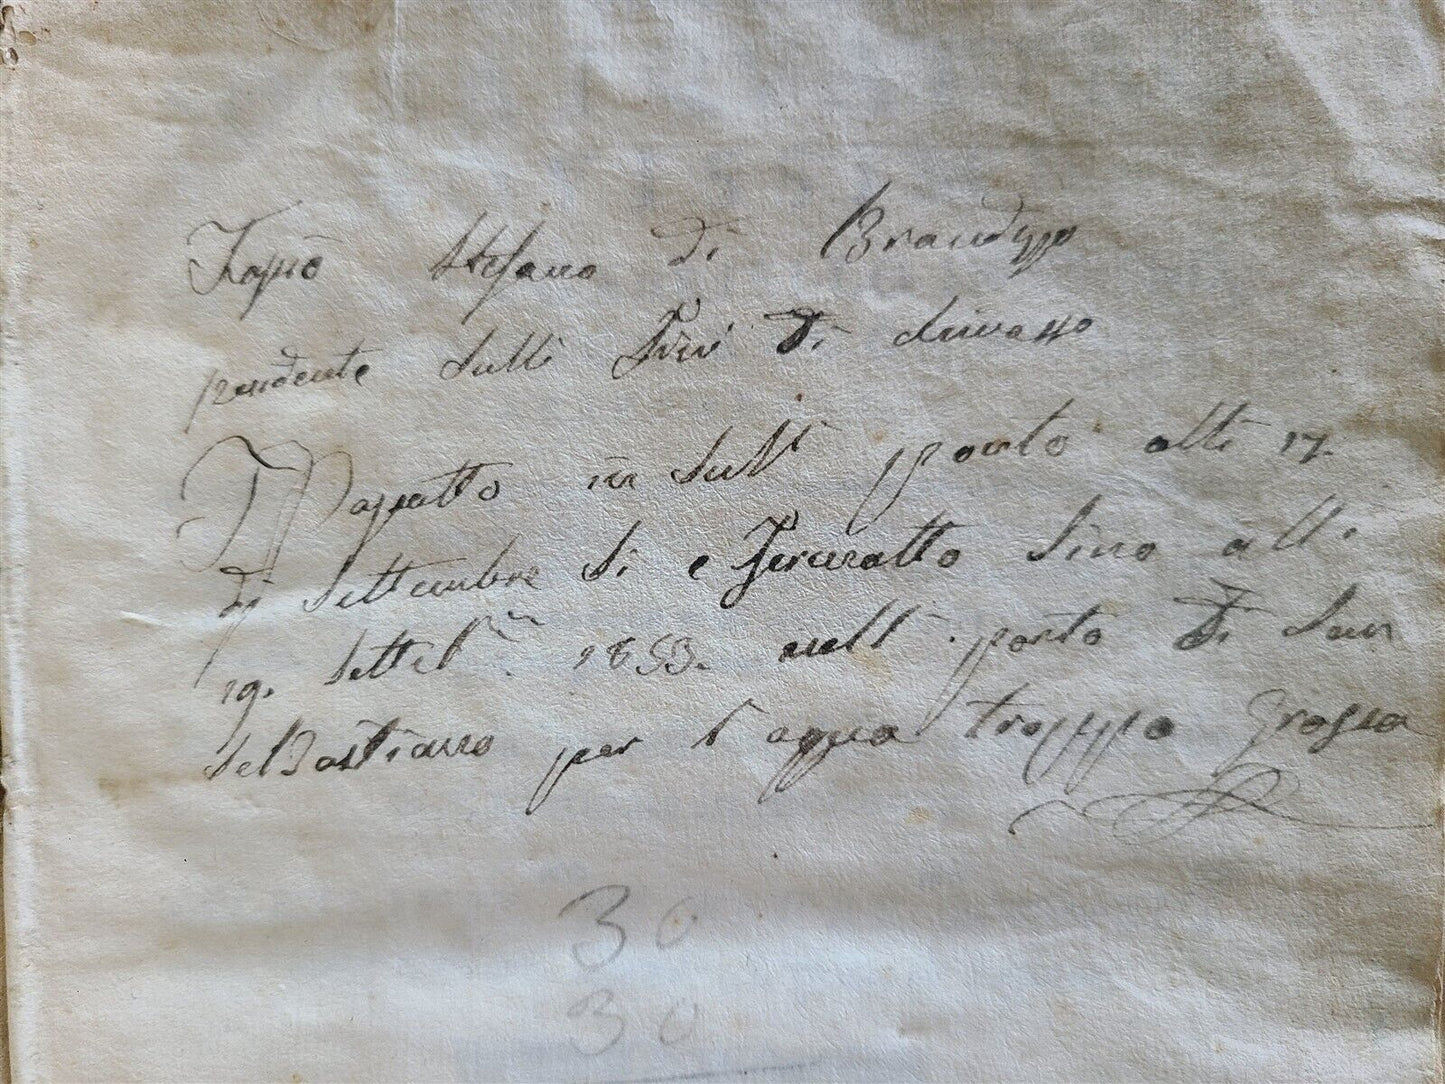 Stefano di Brandizzo
pendente sulli di chivasso
Passatto in sull porto alli 17.
di Settembre si e Fermatto Sino alli
19. Setteb 1853. nell porto di San
Sebastiano per l'aqua troppo Grossa
30
30